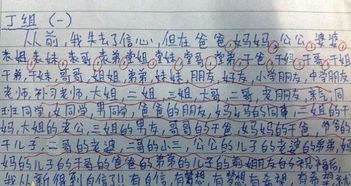 丁组 (一)
从前，我失去了信心，但在爸爸，妈妈，公公，婆婆，
表姐，表妹，表哥，表弟，堂姐，堂妹，堂哥，堂弟，干爸，干妈，干哥，干姐
干弟，干妹，哥哥，姐姐，弟弟，妹妹，朋友，好友，小学朋友，中学朋友
老师，补习老师，大姐，二姐，三姐，大哥，二哥，老朋友，亲戚，同
班同学，女同学，男同学，爸爸的朋友，妈妈的同事，二姐的干
妈，大姐的老公，三姐的男友，哥哥的干爸，妈妈的干爸，爷爷的
干儿子，二哥的老婆，二哥的小三，公公的儿子的老婆的弟弟，姑
妈的儿子的干哥的爸爸的弟弟的儿子的前女友的祝福后，
我从新组到自信!! 有的信，有梦想，有梦想，有希望